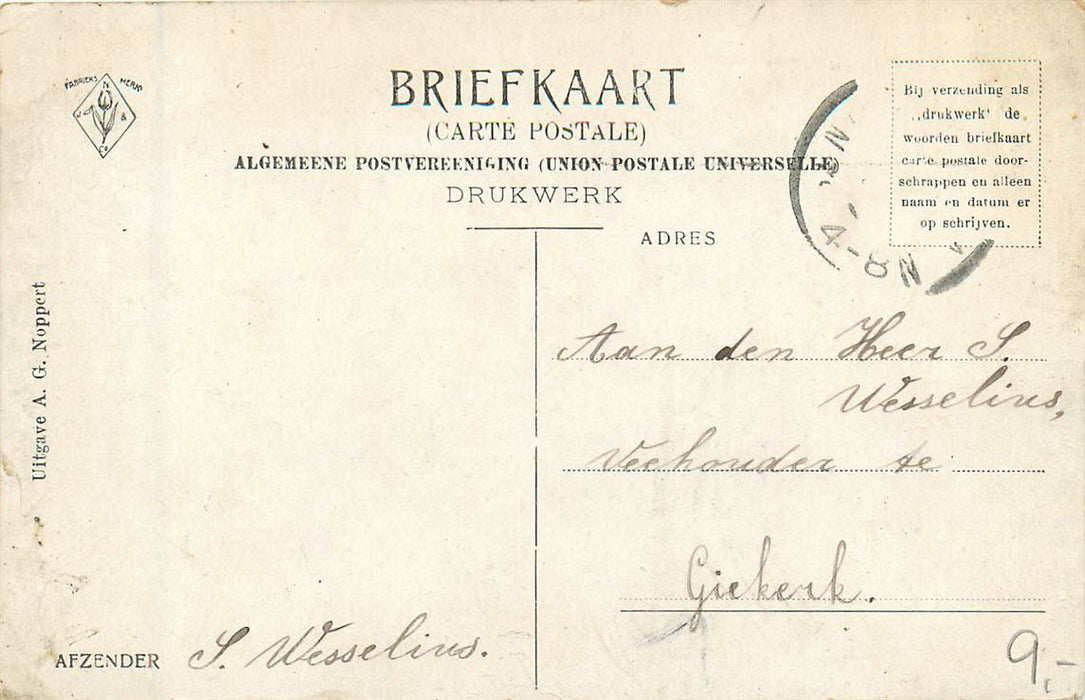 FABRIEKS MERK
N
V D
Co
BRIEFKAART
(CARTE POSTALE)
ALGEMEENE POSTVEREENIGING (UNION POSTALE UNIVERSELLE)
DRUKWERK
Bij verzending als
„drukwerk' de
woorden briefkaart
carte postale door-
schrappen en alleen
naam en datum er
op schrijven.
4-8 N
ADRES
Uitgave A. G. Noppert
Aan den Heer S.
Wesselius,
Veehouder te
Giekerk.
AFZENDER S. Wesselius.
9,-